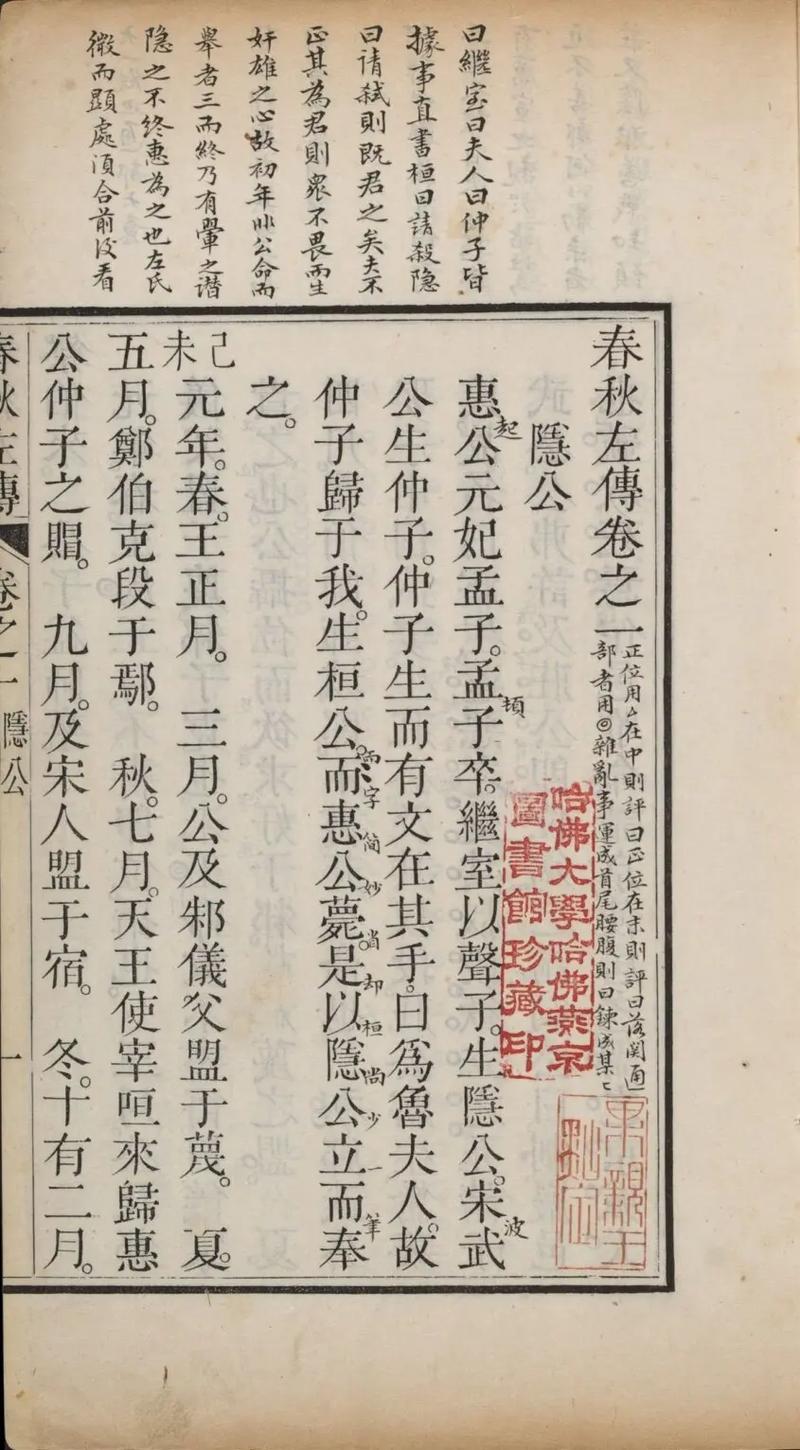 曰繼室曰夫人曰仲子皆
據事直書桓曰請殺隐
曰請弑則既君之矣夫不
正其為君則眾不畏而生
奸雄之心故初年非公命而
舉者三而終乃有翬之譖
隐之不終惠為之也左氏
微而顕處須合前後看
春秋左傳卷之一
正位用△在中則評曰正位在末則評曰落関通
部者用◎雜亂事運成首尾腰腹則曰鍊成某〻
隱公
惠公元妃孟子。孟子卒。繼室以聲子。生隱公。宋武
起
頓
波
公生仲子。仲子生而有文在其手。曰爲魯夫人。故
仲子歸于我。生桓公。而惠公薨。是以隱公立而奉
而字簡妙省却桓尚少一筆
之。
己未
元年。春。王正月。 三月。公及邾儀父盟于蔑。 夏。
五月。鄭伯克段于鄢。 秋。七月。天王使宰咺來歸惠
公仲子之賵。 九月。及宋人盟于宿。 冬。十有二月。
春秋左傳 卷之一 隱公 一
哈佛大學哈佛燕京
圖書館珍藏印